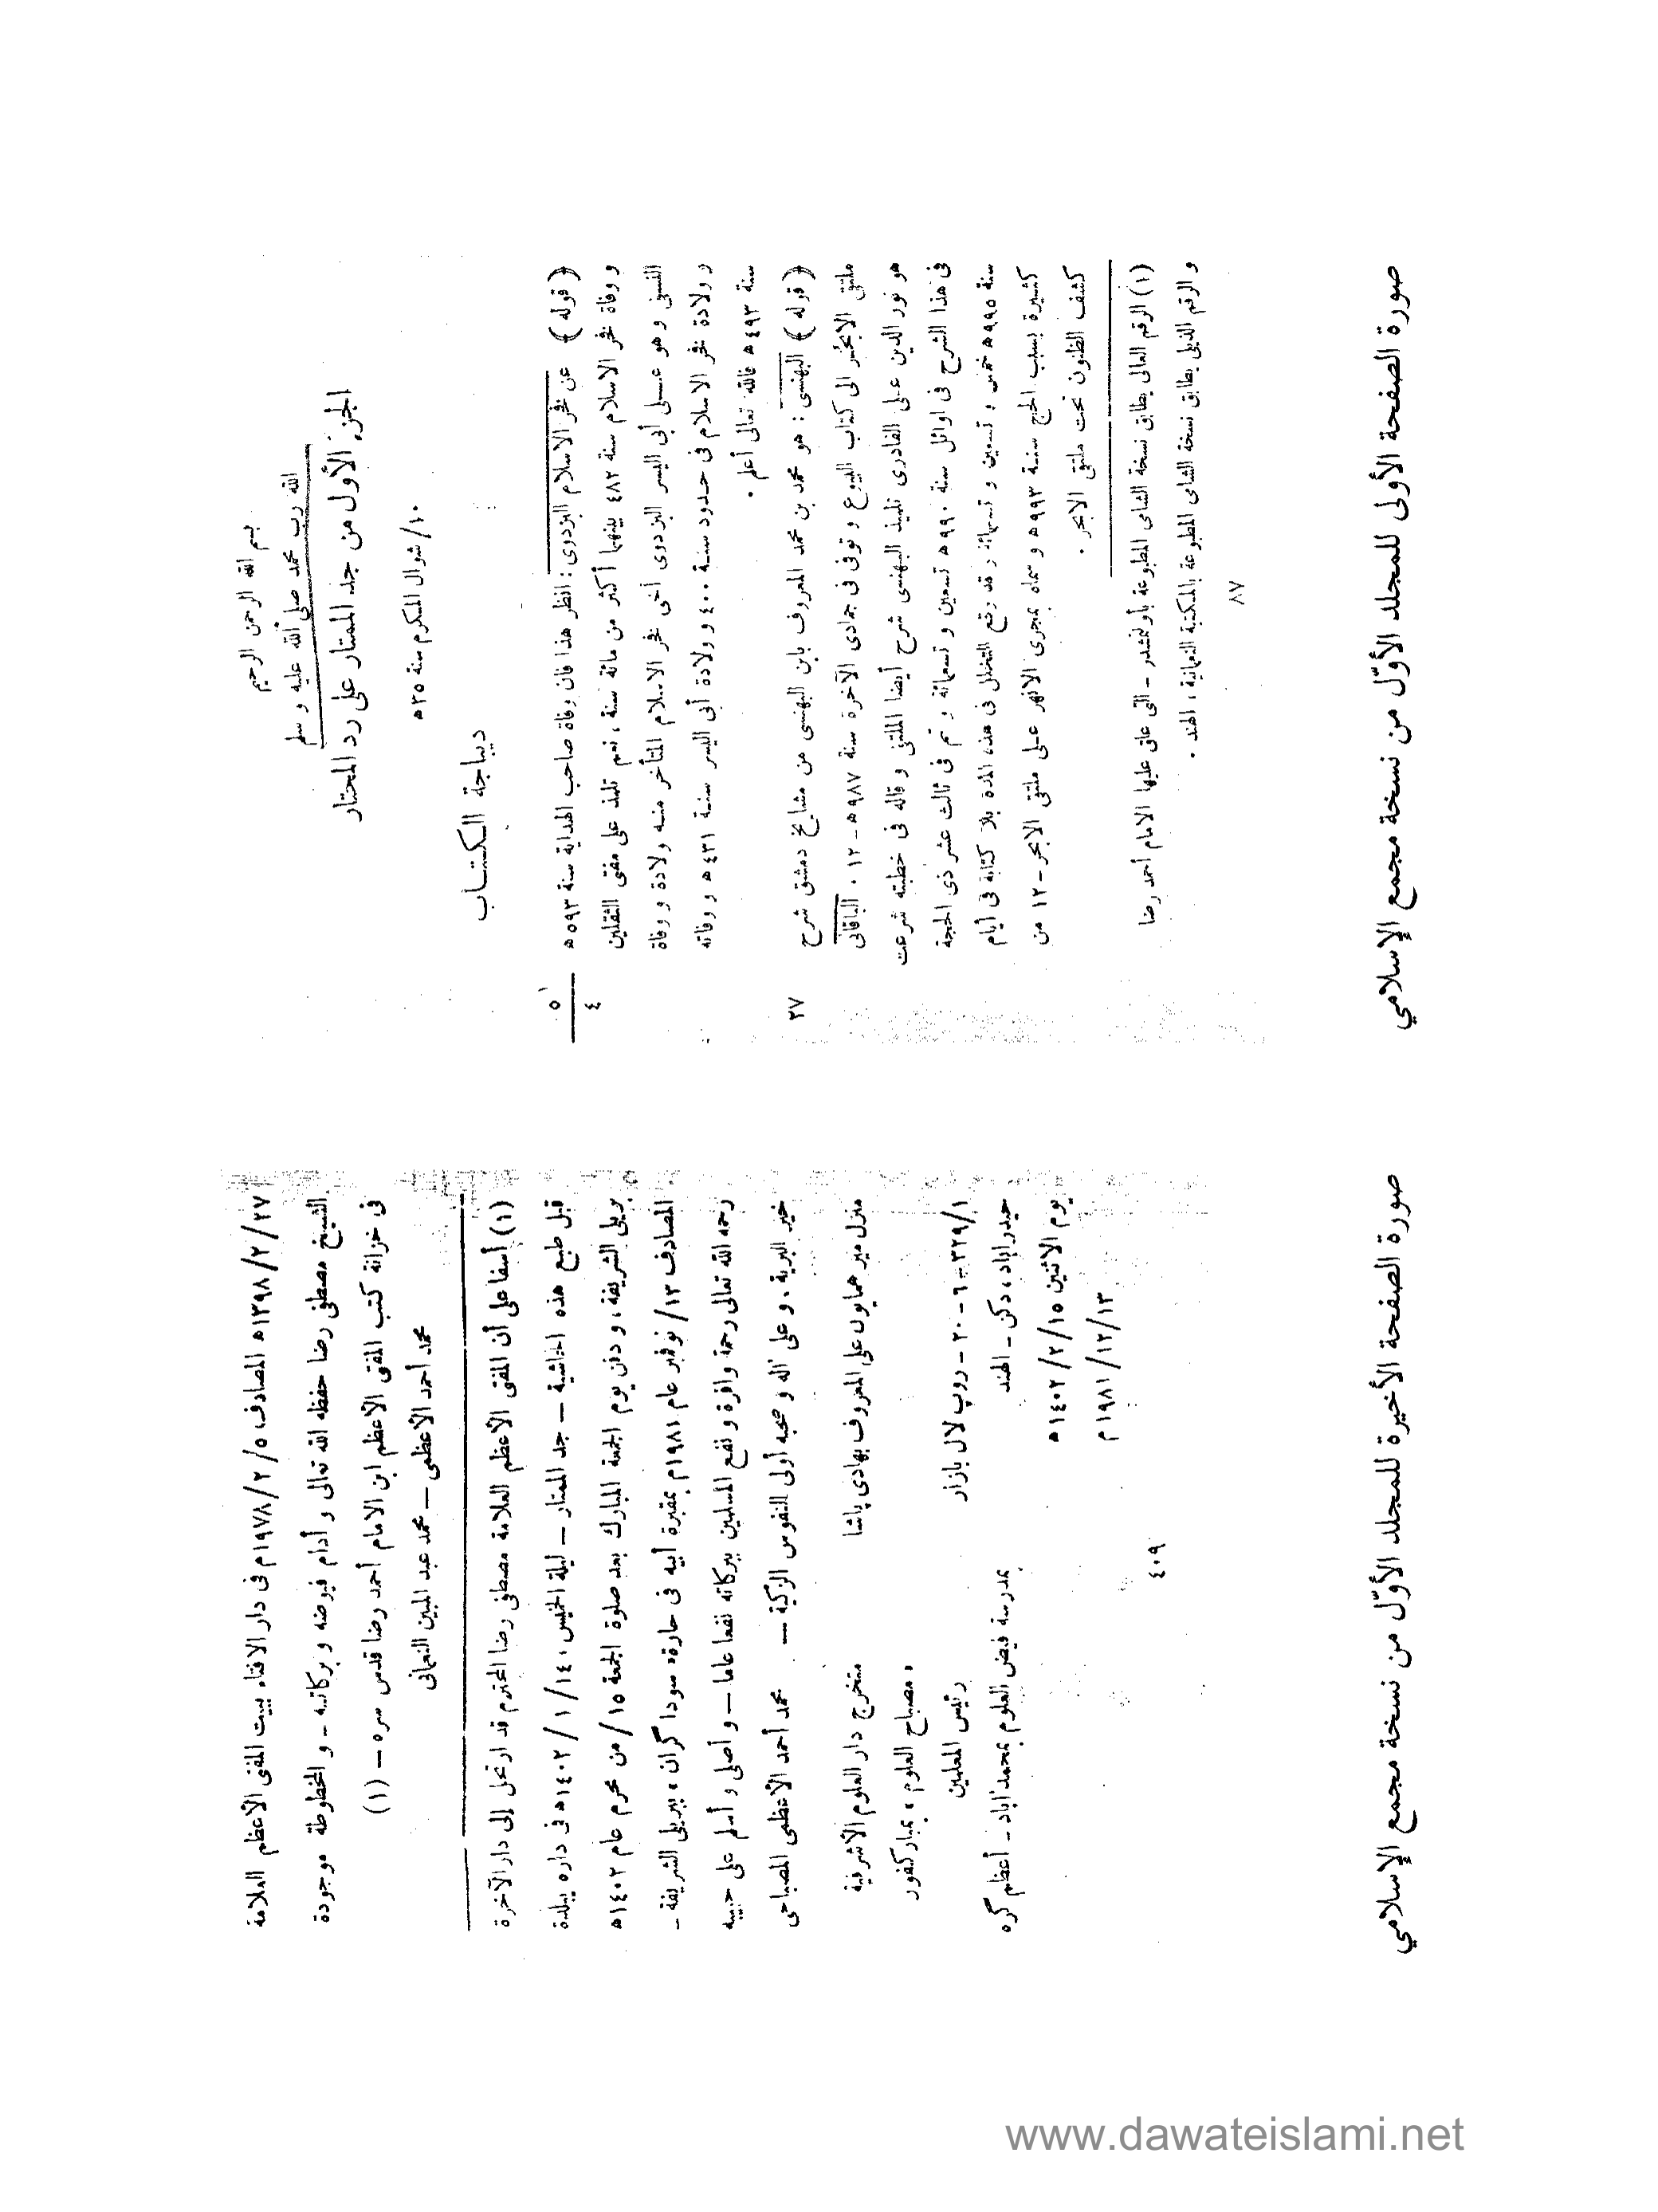 بسم الله الرحمن الرحيم
الله رب محمد صلى الله عليه و سلم
الجزء الأول من جد الممتار على رد المحتار
١٠/شوال المكرم سنة ٣٥ ه
ديباجة الكتاب
٥ ١
٤
﴿ قوله ﴾ عن فخر الاسلام البزدوى : انظر هذا فان وفاة صاحب الهداية سنة ٥٩٣ ه
و وفاة فخر الاسلام سنة ٤٨٢ بينهما أكثر من مائة سنة ، نعم تلمذ على مفتى الثقلين
النسفى و هو عـلى أبى اليسر البزدوى أخى فخر الاسلام المتأخر منـه ولادة و وفاة
و ولادة فخر الاسلام فى حدود سنـة ٤٠٠ و ولادة أبى اليسر سنـة ٤٢١ ه و وفاته
سنة ٤٩٣ ه فالله تعالى أعلم .
٢٧
﴿ قوله ﴾ البهنسى : هو محمد بن محمد المعروف بابن البهنسى من مشايخ دمشق شرح
ملتقى الابحر الى كتاب البيوع و توفى فى جمادى الآخرة سنة ٩٨٧ ه - ١٢ . الباقانى
هو نور الدين عـلى القادرى تلميذ البهنسى شرح أيضا الملتقى و قاله فى خطبته شرعت
فى هذا الشرح فى اوائل سنة ٩٩٠ ه تسعين و تسعمائة و تم فى ثالث عشر ذى الحجة
سنة ٩٩٥ ه خمس و تسعين و تسعمائة و قد وقع التخلل فى هذه المدة بلا كتابة فى أيام
كثـيرة بسبب الحج سنـة ٩٩٣ ه و سماه بمجرى الانهر عـلى ملتقى الابحر - ١٢ من
كشف الظنون تحت ملتقى الابحر .
(١) الرقم العالى يطابق نسخة الشامى المطبوعة - التى علق عليها الامام أحمد رضا
و الرقم الذيلى يطابق نسخة الشامى المطبوعة بالمكتبة النعمانية ، الهند .
٨٧
صورة الصفحة الأولى للمجلد الأوّل من نسخة مجمع الإسلامي
١٣٩٨/٢/٢٧ ه المصادف ١٩٧٨/٢/٥ م فى دار الافتاء ببيت المفتى الأعظم العلامة
الشيخ مصطفى رضا حفظه الله تعالى و أدام فيوضه و بركاتـه - و المخطوطة موجودة
فى خزانة كتب المفتى الأعظم ابن الامام أحمد رضا قدس سره - (١)
محمد أحمد الأعظمى - محمد عبد المبين النعمانى
(١) أسفا على أن المفتى الأعظم العلامة مصطفى رضا المحترم قد ارتحل إلى دار الآخرة
قبل طبع هذه الحاشية - جد الممتار - ليلة الخيس ١٤٠٢/١/١٤ ه فى داره ببلدة
بريلى الشريفة ، و دفن يوم الجمعة المبارك بعد صلوة الجمعة ١٥/ من محرم عام ١٤٠٢ ه
المصادف ١٣/نوفمبر عام ١٩٨١ م بمقبرة أبيه فى حارة « سودا گران » ببريلى الشريفة -
رحمه الله تعالى رحمة وافرة و نفع المسلمين ببركاته نفعا عاما - و أصلى و أسلم على حبيبه
خير البرية ، و على آله و صحبه أولى النفوس الزكية - محمد أحمد الأعظمى المصباحى
منزل مير همايون على المعروف بهادى پاشا
٣٢٩/١-٦-٢٠ - روپ لال بازار
حيدراباد ، دكن - الهند
يوم الاثنين ١٤٠٢/٢/١٥ ه
١٩٨١/١٢/١٣ م
متخرج دار العلوم الأشرفية
« مصباح العلوم » بمباركفور
رئيس المعلمين
بمدرسة فيض العلوم بمحمداباد - أعظم گره
٤٠٩
صورة الصفحة الأخيرة للمجلد الأوّل من نسخة مجمع الإسلامي
www.dawateislami.net